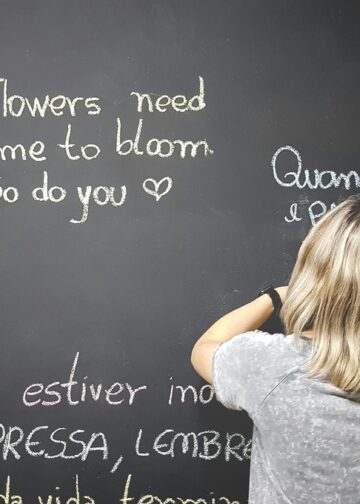 lowers need
me to bloom.
so do you ♡
Quan
e p
estiver in
PRESSA, LEMBRE
da vida